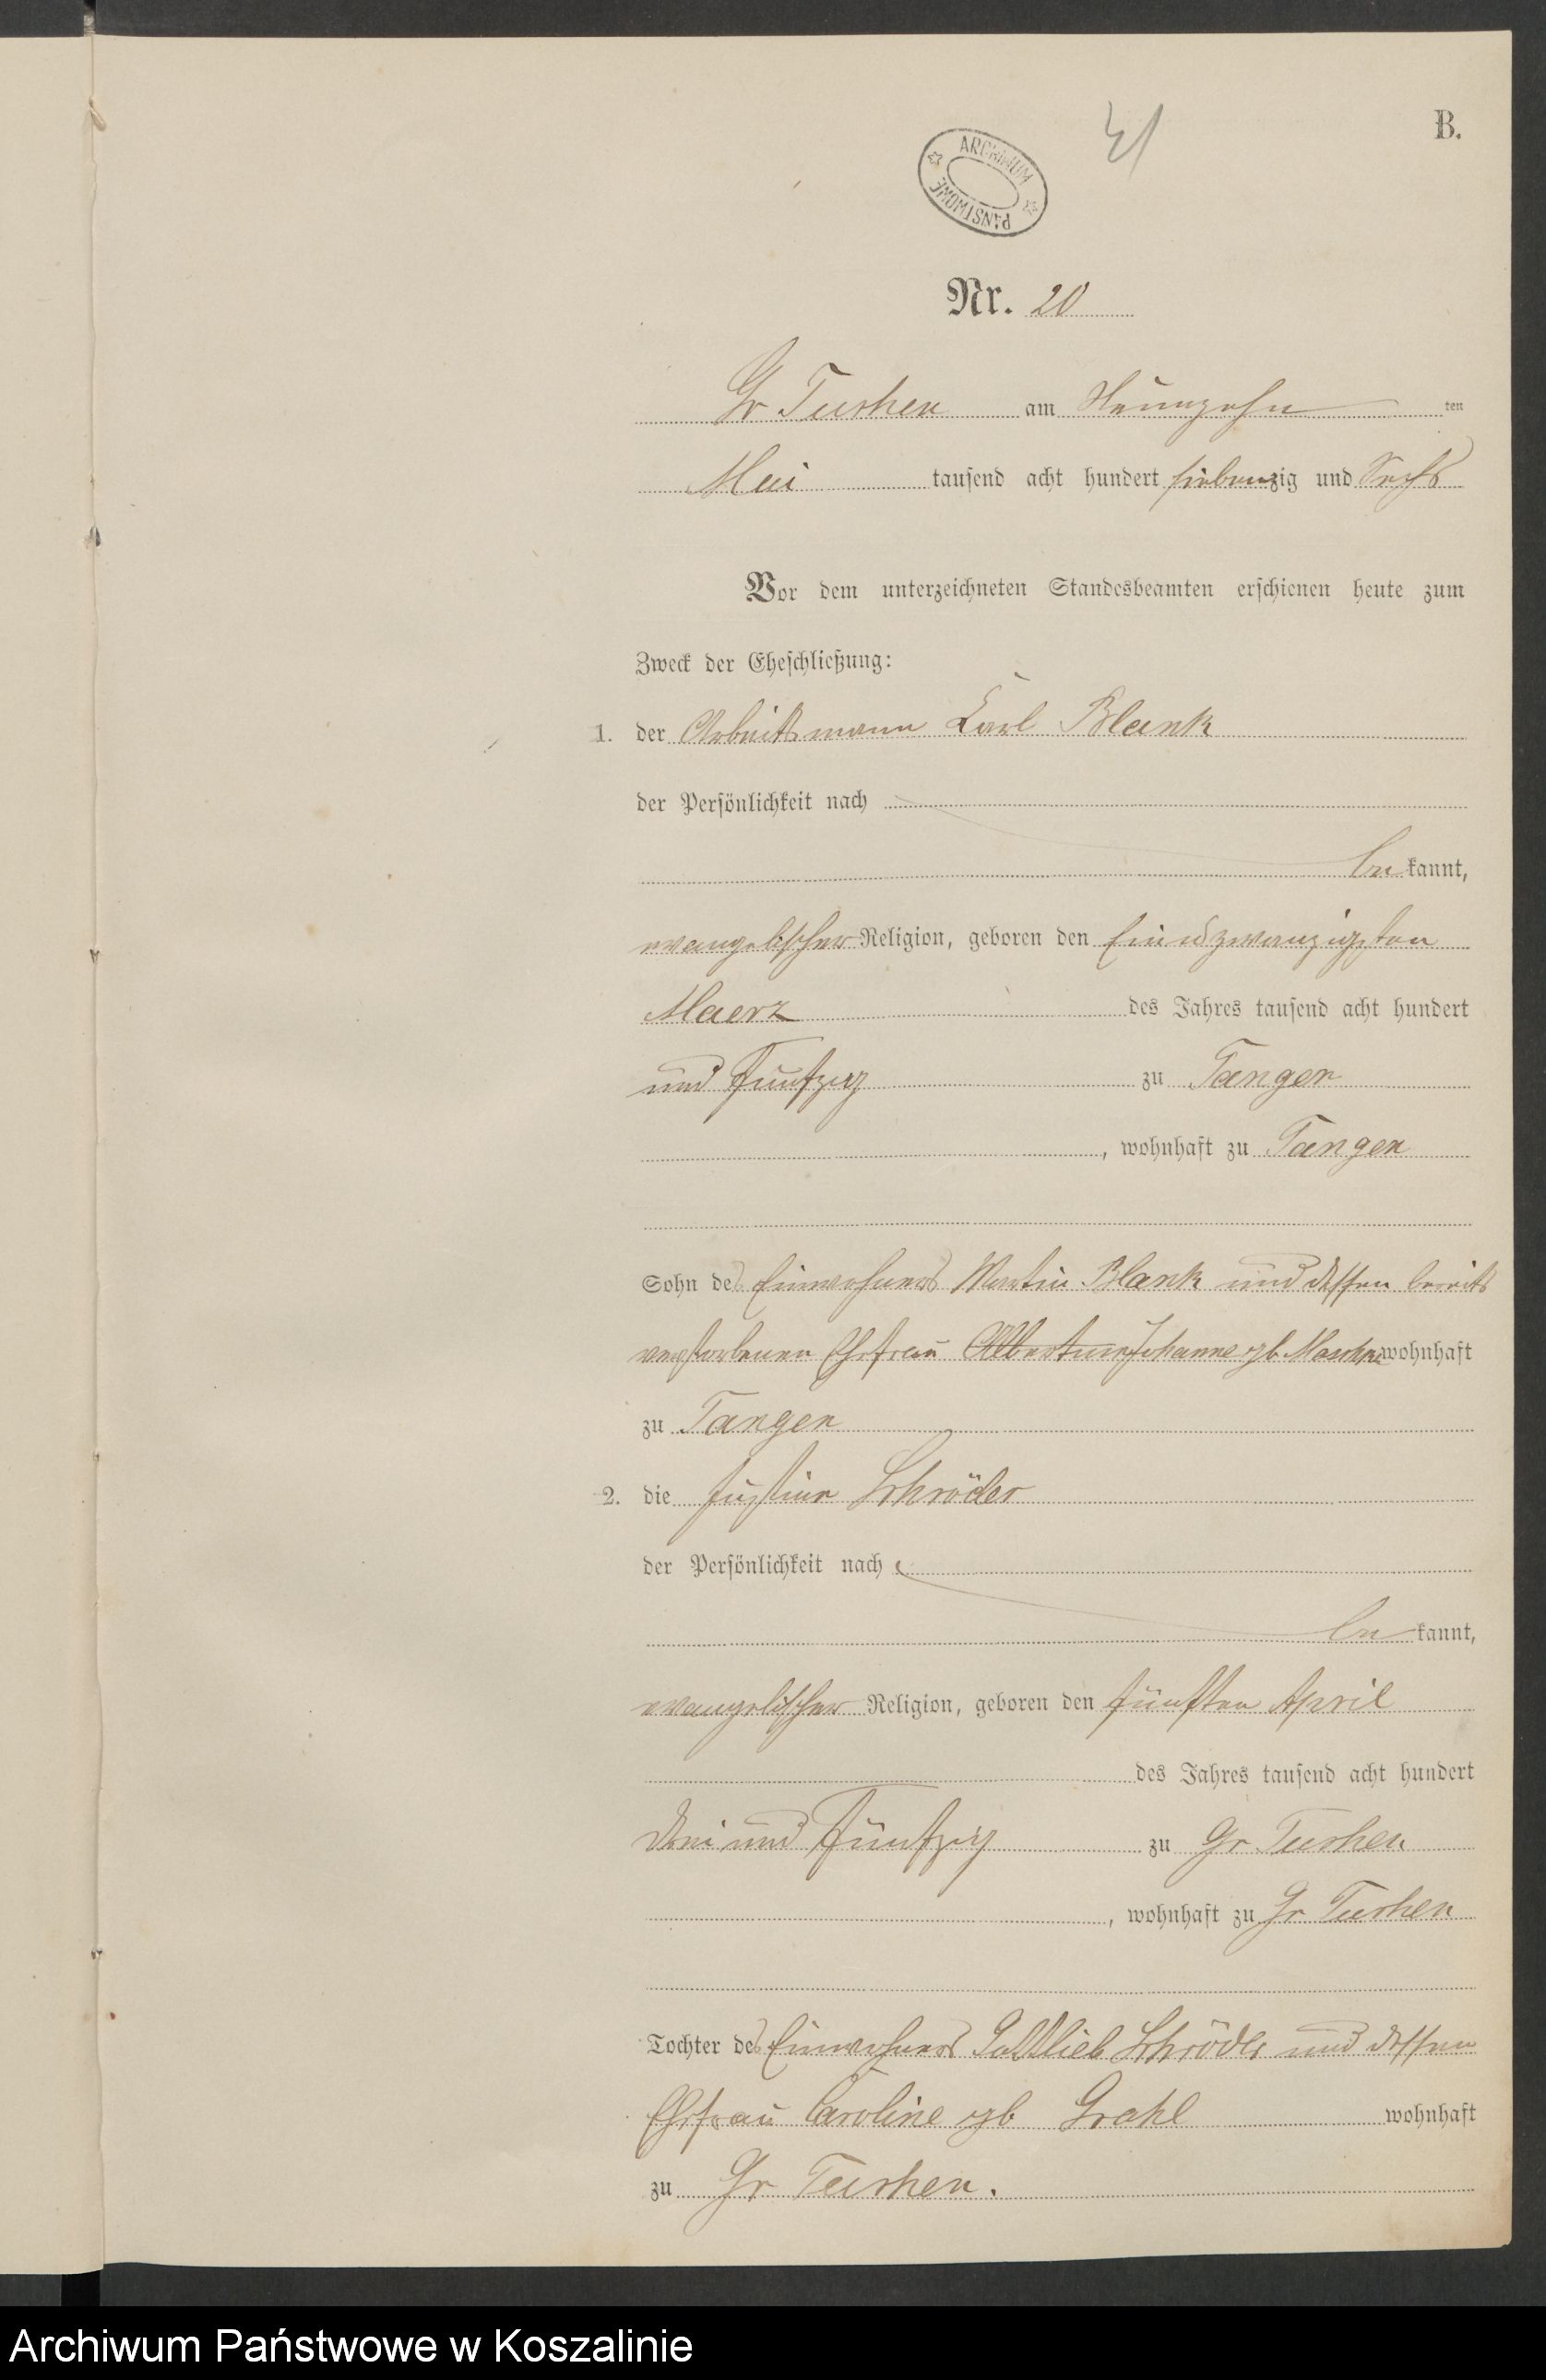 41
B.
ARCHIWUM PAŃSTWOWE
Nr. 20
Gr Tuchen am Neunzehn ten
Mai tausend acht hundert siebenzig und Sechs
Vor dem unterzeichneten Standesbeamten erschienen heute zum
Zweck der Eheschließung:
1. der Arbeitsmann Karl Blank
der Persönlichkeit nach
bekannt,
evangelischer Religion, geboren den Einundzwanzigsten
Maerz des Jahres tausend acht hundert
und Fünfzig zu Tangen
, wohnhaft zu Tangen
Sohn des Einwohners Martin Blank und dessen bereits
verstorbenen Ehefrau Albertine Johanne geb. wohnhaft
zu Tangen
2. die Justine Schröder
der Persönlichkeit nach
bekannt,
evangelischer Religion, geboren den fünften April
des Jahres tausend acht hundert
drei und Fünfzig zu Gr Tuchen
, wohnhaft zu Gr Tuchen
Tochter des Einwohners Gottlieb Schröder und dessen
Ehefrau Caroline geb Grahl wohnhaft
zu Gr Tuchen.
Archiwum Państwowe w Koszalinie